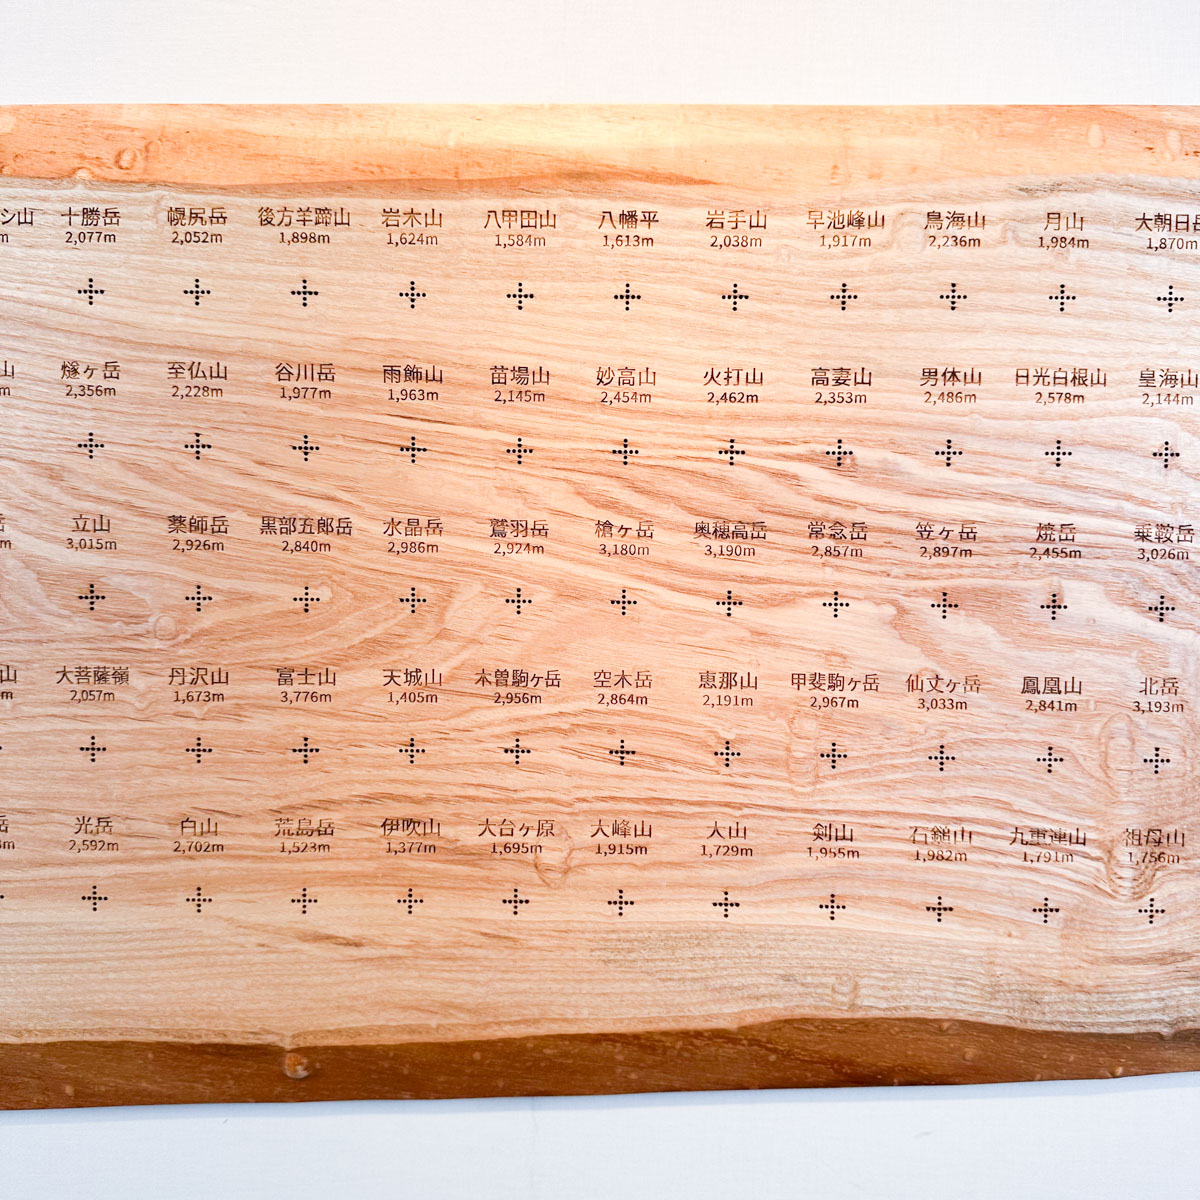 シ山 十勝岳 幌尻岳 後方羊蹄山 岩木山 八甲田山 八幡平 岩手山 早池峰山 鳥海山 月山 大朝日岳
m 2,077m 2,052m 1,898m 1,624m 1,584m 1,613m 2,038m 1,917m 2,236m 1,984m 1,870m
山 燧ヶ岳 至仏山 谷川岳 雨飾山 苗場山 妙高山 火打山 高妻山 男体山 日光白根山 皇海山
m 2,356m 2,228m 1,977m 1,963m 2,145m 2,454m 2,462m 2,353m 2,486m 2,578m 2,144m
岳 立山 薬師岳 黒部五郎岳 水晶岳 鷲羽岳 槍ヶ岳 奥穂高岳 常念岳 笠ヶ岳 焼岳 乗鞍岳
m 3,015m 2,926m 2,840m 2,986m 2,924m 3,180m 3,190m 2,857m 2,897m 2,455m 3,026m
山 大菩薩嶺 丹沢山 富士山 天城山 木曽駒ヶ岳 空木岳 恵那山 甲斐駒ヶ岳 仙丈ヶ岳 鳳凰山 北岳
m 2,057m 1,673m 3,776m 1,405m 2,956m 2,864m 2,191m 2,967m 3,033m 2,841m 3,193m
岳 光岳 白山 荒島岳 伊吹山 大台ヶ原 大峰山 大山 剣山 石鎚山 九重連山 祖母山
m 2,592m 2,702m 1,523m 1,377m 1,695m 1,915m 1,729m 1,955m 1,982m 1,791m 1,756m